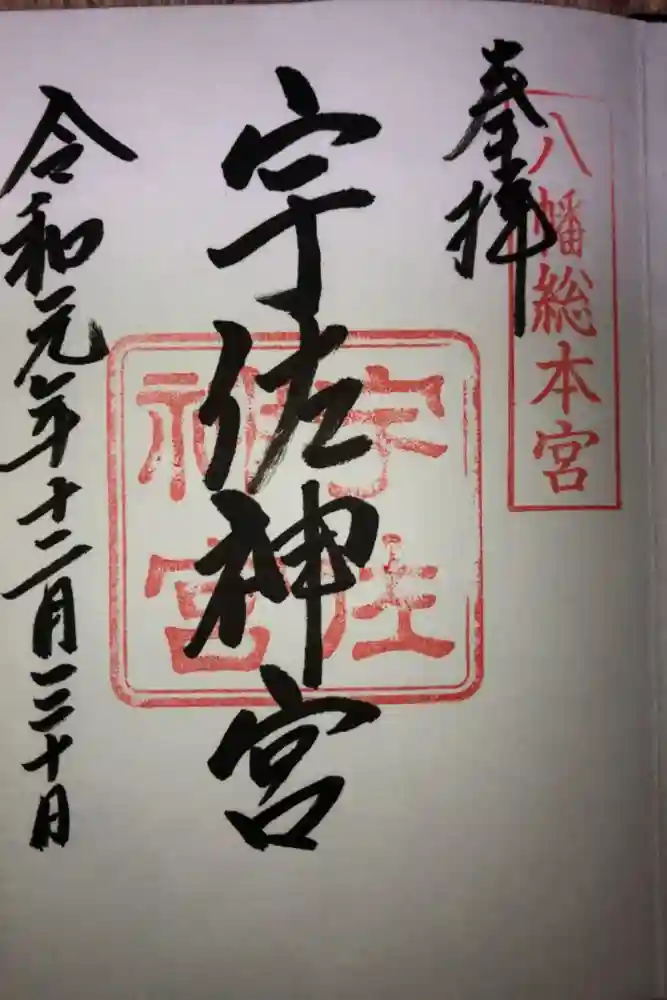 奉拝
八幡総本宮
宇佐神宮
宇佐
神宮
令和元年十二月三十日